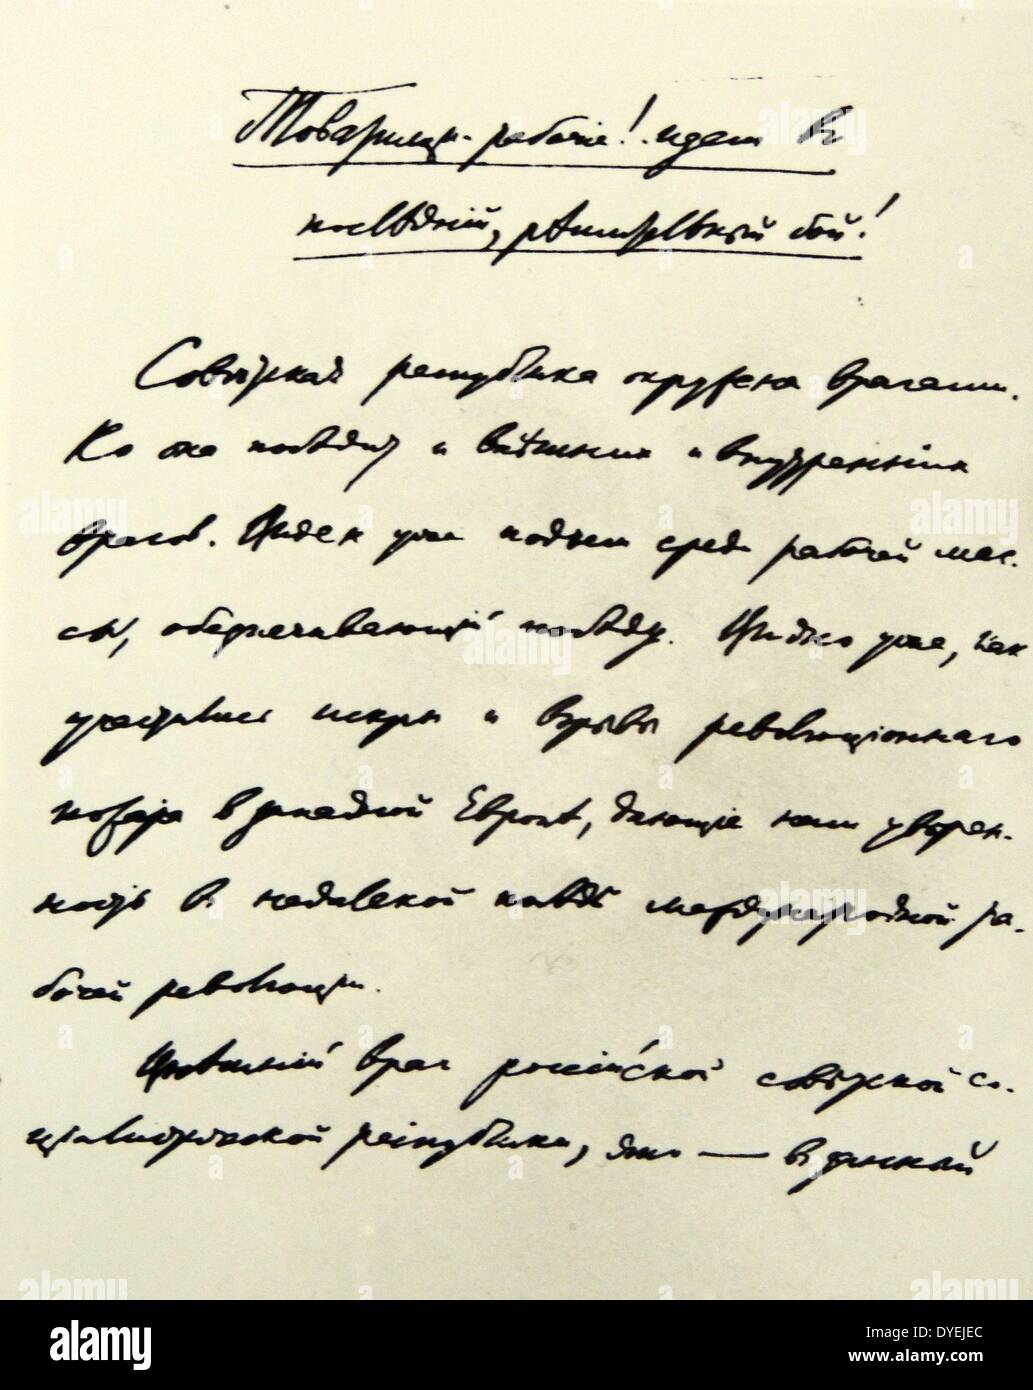 Товарищи-рабочіе! Идем в
послѣдній, рѣшительный бой!
Совѣтская республика окружена врагами.
Но она побѣдит и внѣшних и внутренних
врагов. Виден уже подъем среди рабочей мас-
сы, обеспечивающий побѣду. Видно уже, как
участились искры и взрывы революціоннаго
пожара в западной Европѣ, дающіе нам уверен-
ность в недалекой побѣдѣ международной ра-
бочей революціи.
Внѣшній враг россійской совѣтской со-
ціалистической республики, это — в данный
alamy
alamy
Image ID: DYEJEC
www.alamy.com